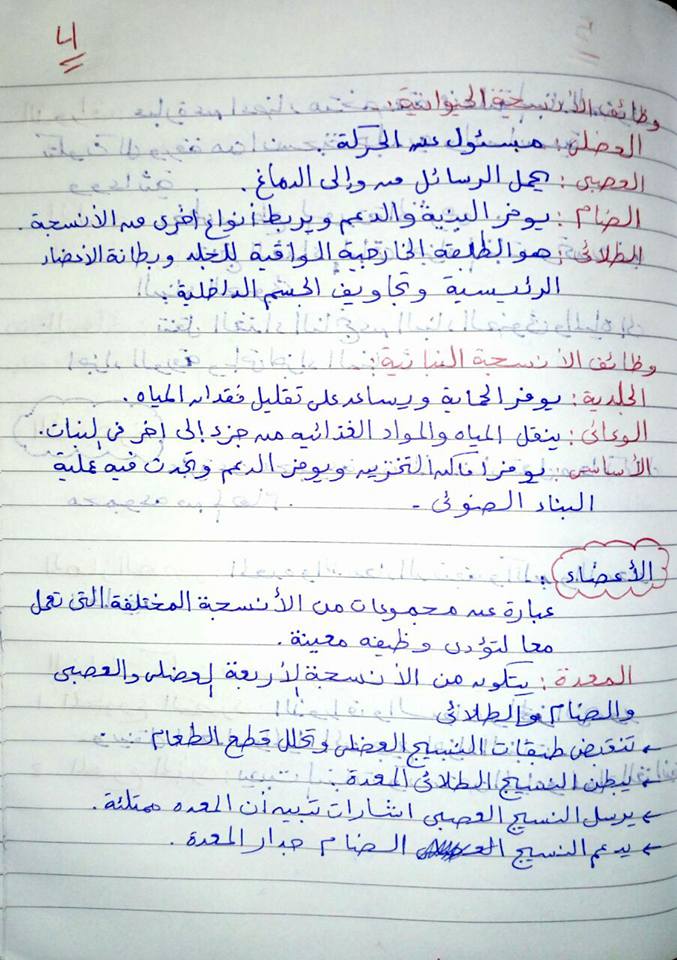 4
وظائف الأنسجة الحيوانية:
العضلى: مسئول عن الحركة.
العصبى: يحمل الرسائل من وإلى الدماغ.
الضام: يوفر البنية والدعم ويربط أنواع اخرى من الأنسجة.
الطلائى: هو الطبقة الخارجية الواقية للجلد وبطانة الاعضاء
الرئيسية وتجاويف الجسم الداخلية.
وظائف الأنسجة النباتية:
الجلدية: يوفر الحماية ويساعد على تقليل فقدان المياه.
الوعائى: ينقل المياه والمواد الغذائيه من جزء إلى اخر فى لنبات.
الأساسى: يوفر أماكن التخزين ويوفر الدعم وتحدث فيه عملية
البناء الضوئى.
الأعضاء:
عبارة عن مجموعات من الأنسجة المختلفة التى تعمل
معا لتؤدى وظيفه معينة.
المعدة: يتكون من الأنسجة لأربعة لعضلى والعصبى
والضام والطلائى
← تنقبض طبقات النسيج العضلى وتحلل قطع الطعام
← يبطن النسيج الطلائى المعدة.
← يرسل النسيج العصبى اشارات تبيه أن المعده ممتلئة.
← يدعم النسيج الضام جدار المعدة.